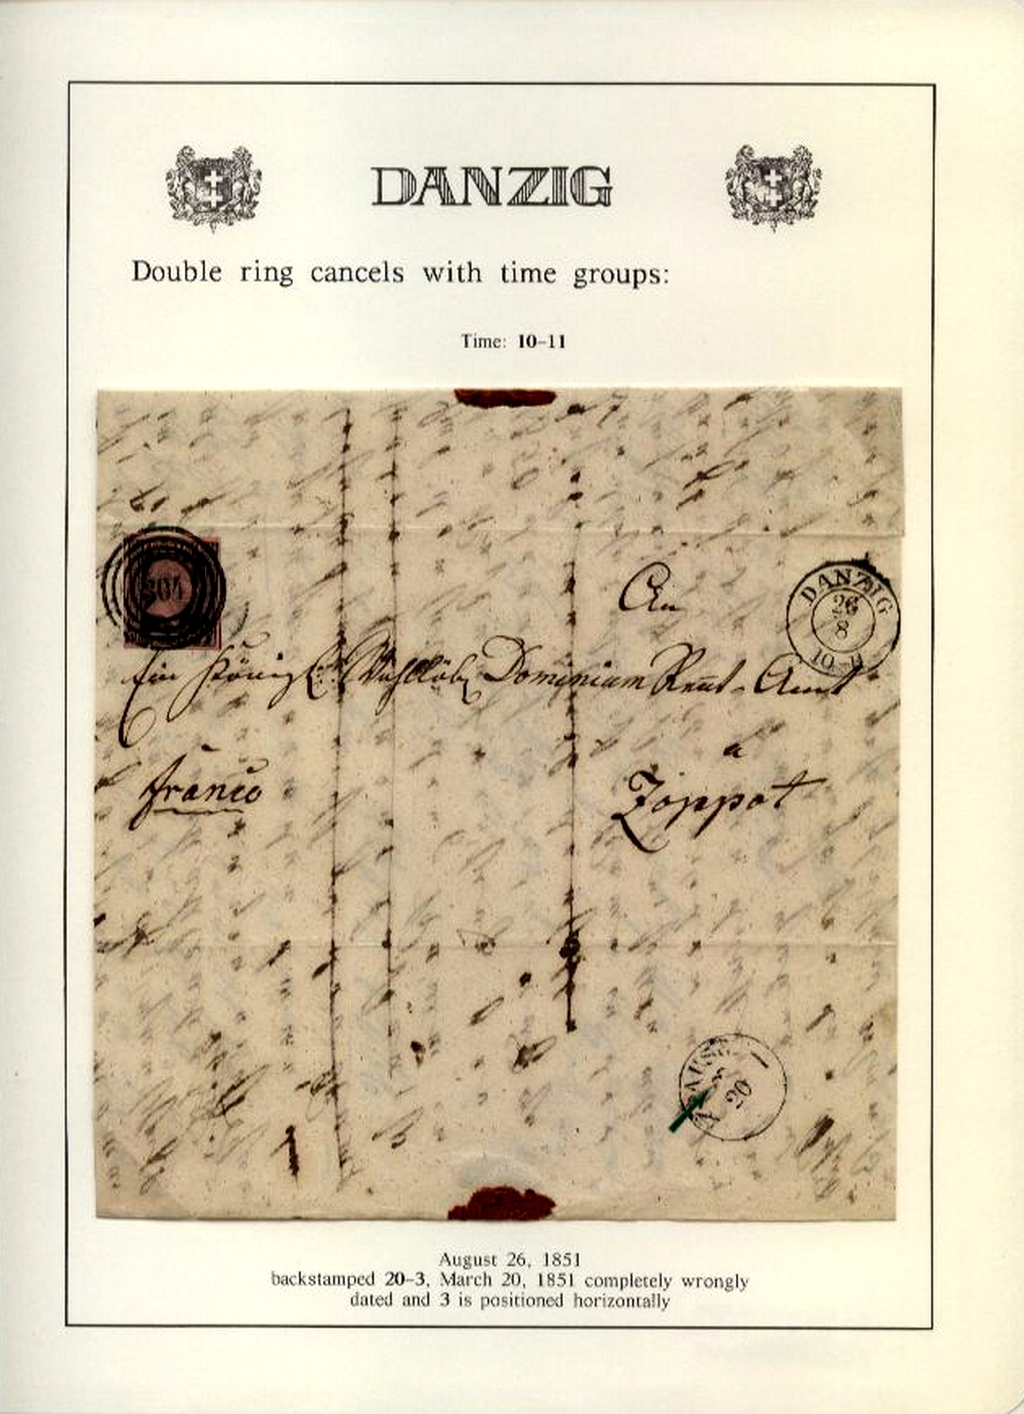 DANZIG
Double ring cancels with time groups:
Time: 10-11
304
An
DANZIG
26
8
10-11
Ein Königl. Wohllöbl. Dominium Rent-Amt
a
franco
Zoppot
AUS
3
20
August 26, 1851
backstamped 20-3, March 20, 1851 completely wrongly
dated and 3 is positioned horizontally